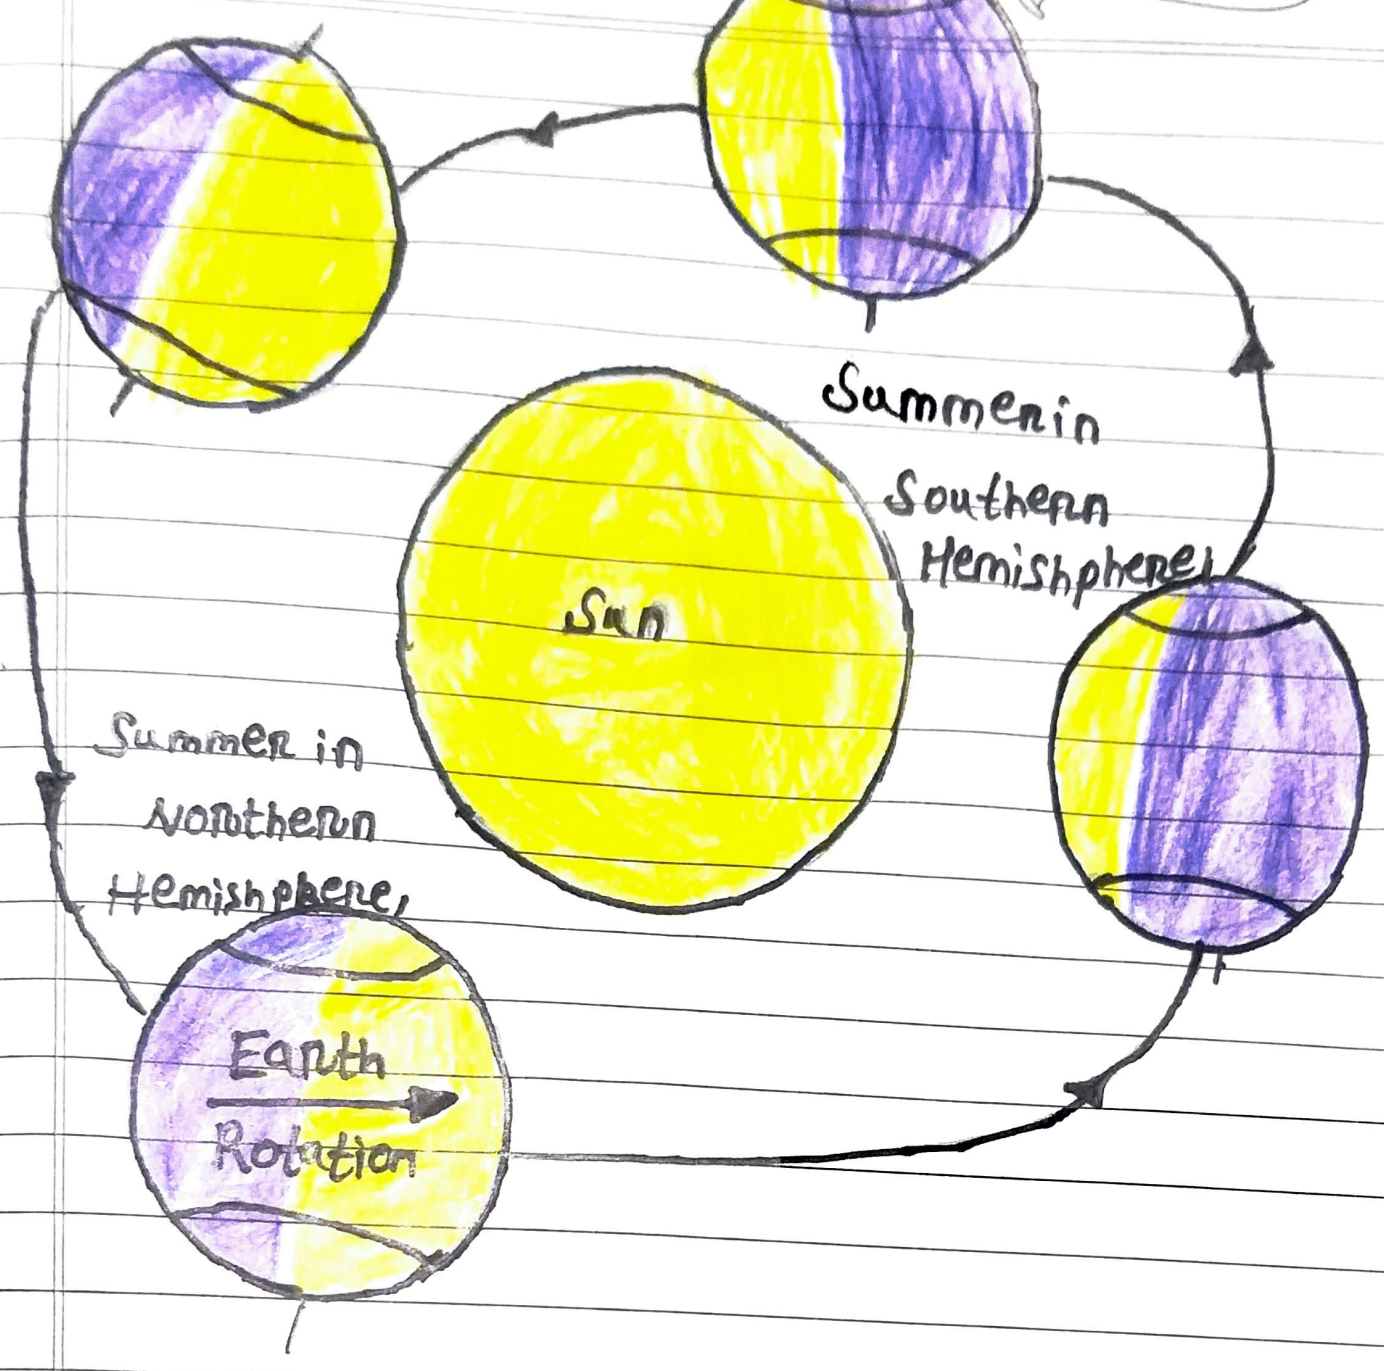 Summer in
Southern
Hemishphere,
Sun
Summer in
Northern
Hemishphere,
Earth
Rotation